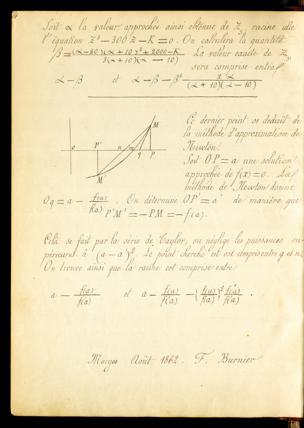 Soit α la valeur approchée ainsi obtenue de z, racine de
l'équation z³ − 300 z − K = 0. On calculera la quantité
β = ((α−20)(α+10)² + 2000 − K) / (3(α+10)(α−10)). La valeur exacte de z
sera comprise entre
α − β et α − β − β² α / ((α+10)(α−10))
Ce dernier point se déduit de
la méthode d'approximation de
Newton.
Soit OP = a une solution
approchée de f(x) = 0. La
méthode de Newton donne
O P' n m q P M M'
Oq = a − f(a)/f'(a). On détermine OP' = a' de manière que
P'M' = −PM = −f(a).
Cela se fait par la série de Taylor, on néglige les puissances su-
périeures à (a − a')². Le point cherché est compris entre q et n.
On trouve ainsi que la racine est comprise entre
a − f(a)/f'(a) et a − f(a)/f'(a) −
Morges Août 1862. F. Burnier